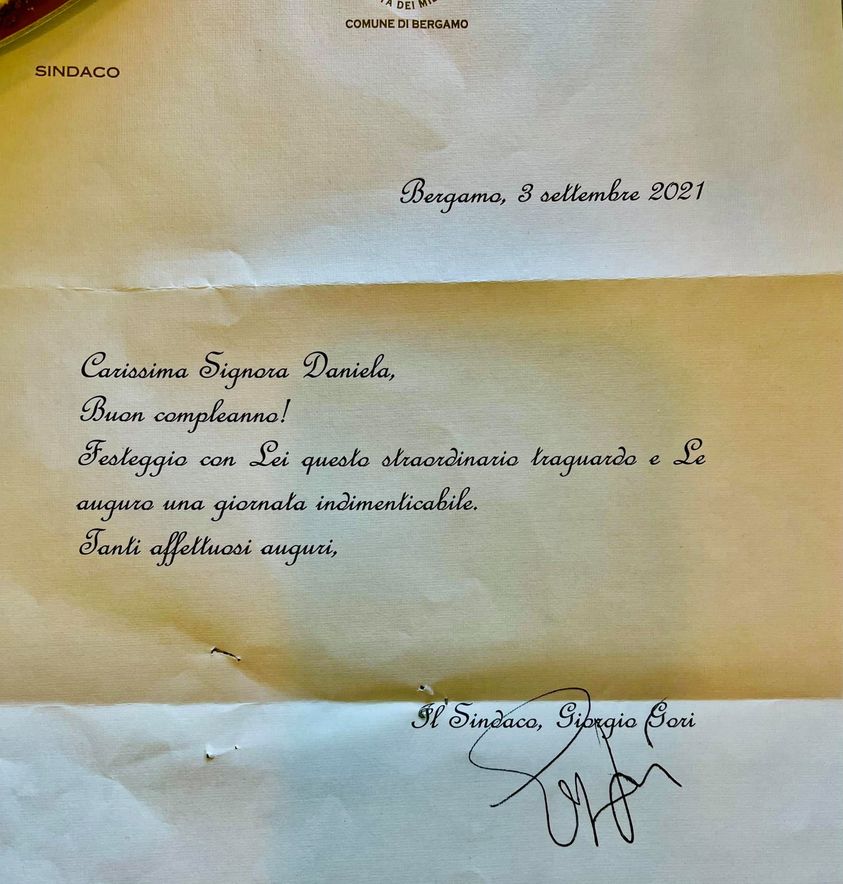 TÀ DEI MIL
COMUNE DI BERGAMO
SINDACO
Bergamo, 3 settembre 2021
Carissima Signora Daniela,
Buon compleanno!
Festeggio con Lei questo straordinario traguardo e Le
auguro una giornata indimenticabile.
Tanti affettuosi auguri,
Il Sindaco, Giorgio Gori